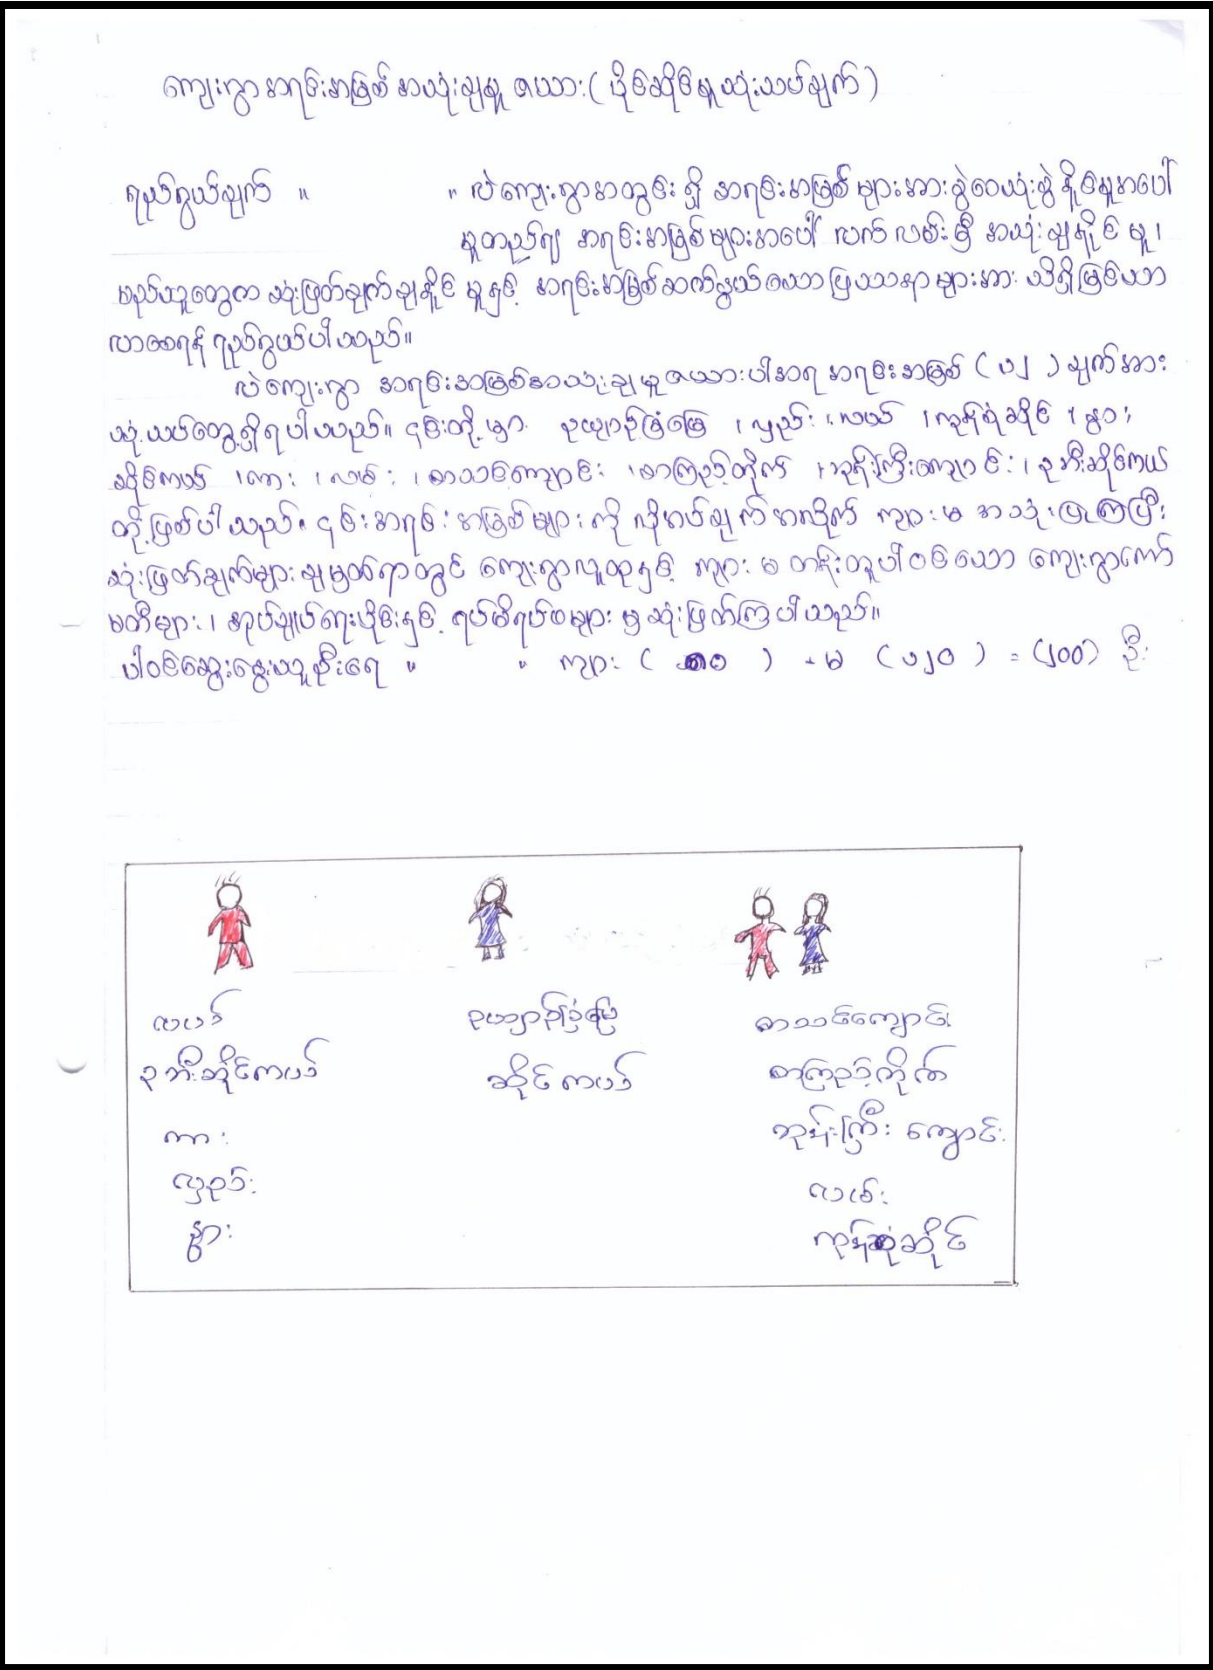 ကျေးရွာအရင်းအမြစ် အသုံးချမှု ဇယား ( ပိုင်ဆိုင်မှု သုံးသပ်ချက် )
ရည်ရွယ်ချက် " " လဲကျေးရွာအတွင်း ရှိ အရင်းအမြစ် များအား ခွဲဝေသုံးစွဲ နိုင်မှုအပေါ်
မူတည်၍ အရင်းအမြစ်များအပေါ် လက်လမ်းမှီ အသုံးချနိုင် မှု ၊
မည်သူတွေက ဆုံးဖြတ်ချက်ချနိုင် မှုနှင့် အရင်းအမြစ်ဆက်နွယ်သော ပြဿနာ များအား သိရှိမြင်သာ
လာစေရန် ရည်ရွယ်ပါသည်။
လဲကျေးရွာ အရင်းအမြစ်အသုံးချမှုဇယားပါအရ အရင်းအမြစ် ( ၁၂ ) ချက်အား
သုံးသပ်တွေ့ရှိရပါသည်။ ၎င်းတို့မှာ ဥယျာဉ်ခြံမြေ ၊ လှည်း ၊ လယ် ၊ ကုန်စုံဆိုင် ၊ နွား ၊
ဆိုင်ကယ် ၊ ကား ၊ လမ်း ၊ စာသင်ကျောင်း ၊ စာကြည့်တိုက် ၊ ဘုန်းကြီးကျောင်း ၊ ၃ဘီးဆိုင်ကယ်
တို့ဖြစ်ပါသည်။ ၎င်းအရင်းအမြစ်များ ကို လိုအပ်ချက်အလိုက် ကျား မ အသုံးပြုကြပြီး
ဆုံးဖြတ်ချက်များ ချမှတ်ရာတွင် ကျေးရွာလူထုနှင့် ကျား မ တန်းတူပါဝင်သော ကျေးရွာကော်
မတီများ ၊ အုပ်ချုပ်ရေးပိုင်းနှင့် ရပ်မိရပ်ဖများ မှ ဆုံးဖြတ်ကြပါသည်။
ပါဝင်ဆွေးနွေးသူဦးရေ " " ကျား ( ၈၀ ) + မ ( ၁၂၀ ) = (၂၀၀) ဦး
လယ် ဥယျာဉ်ခြံမြေ စာသင်ကျောင်း
၃ဘီးဆိုင်ကယ် ဆိုင်ကယ် စာကြည့်တိုက်
ကား ဘုန်းကြီး ကျောင်း
လှည်း လမ်း
နွား ကုန်စုံဆိုင်